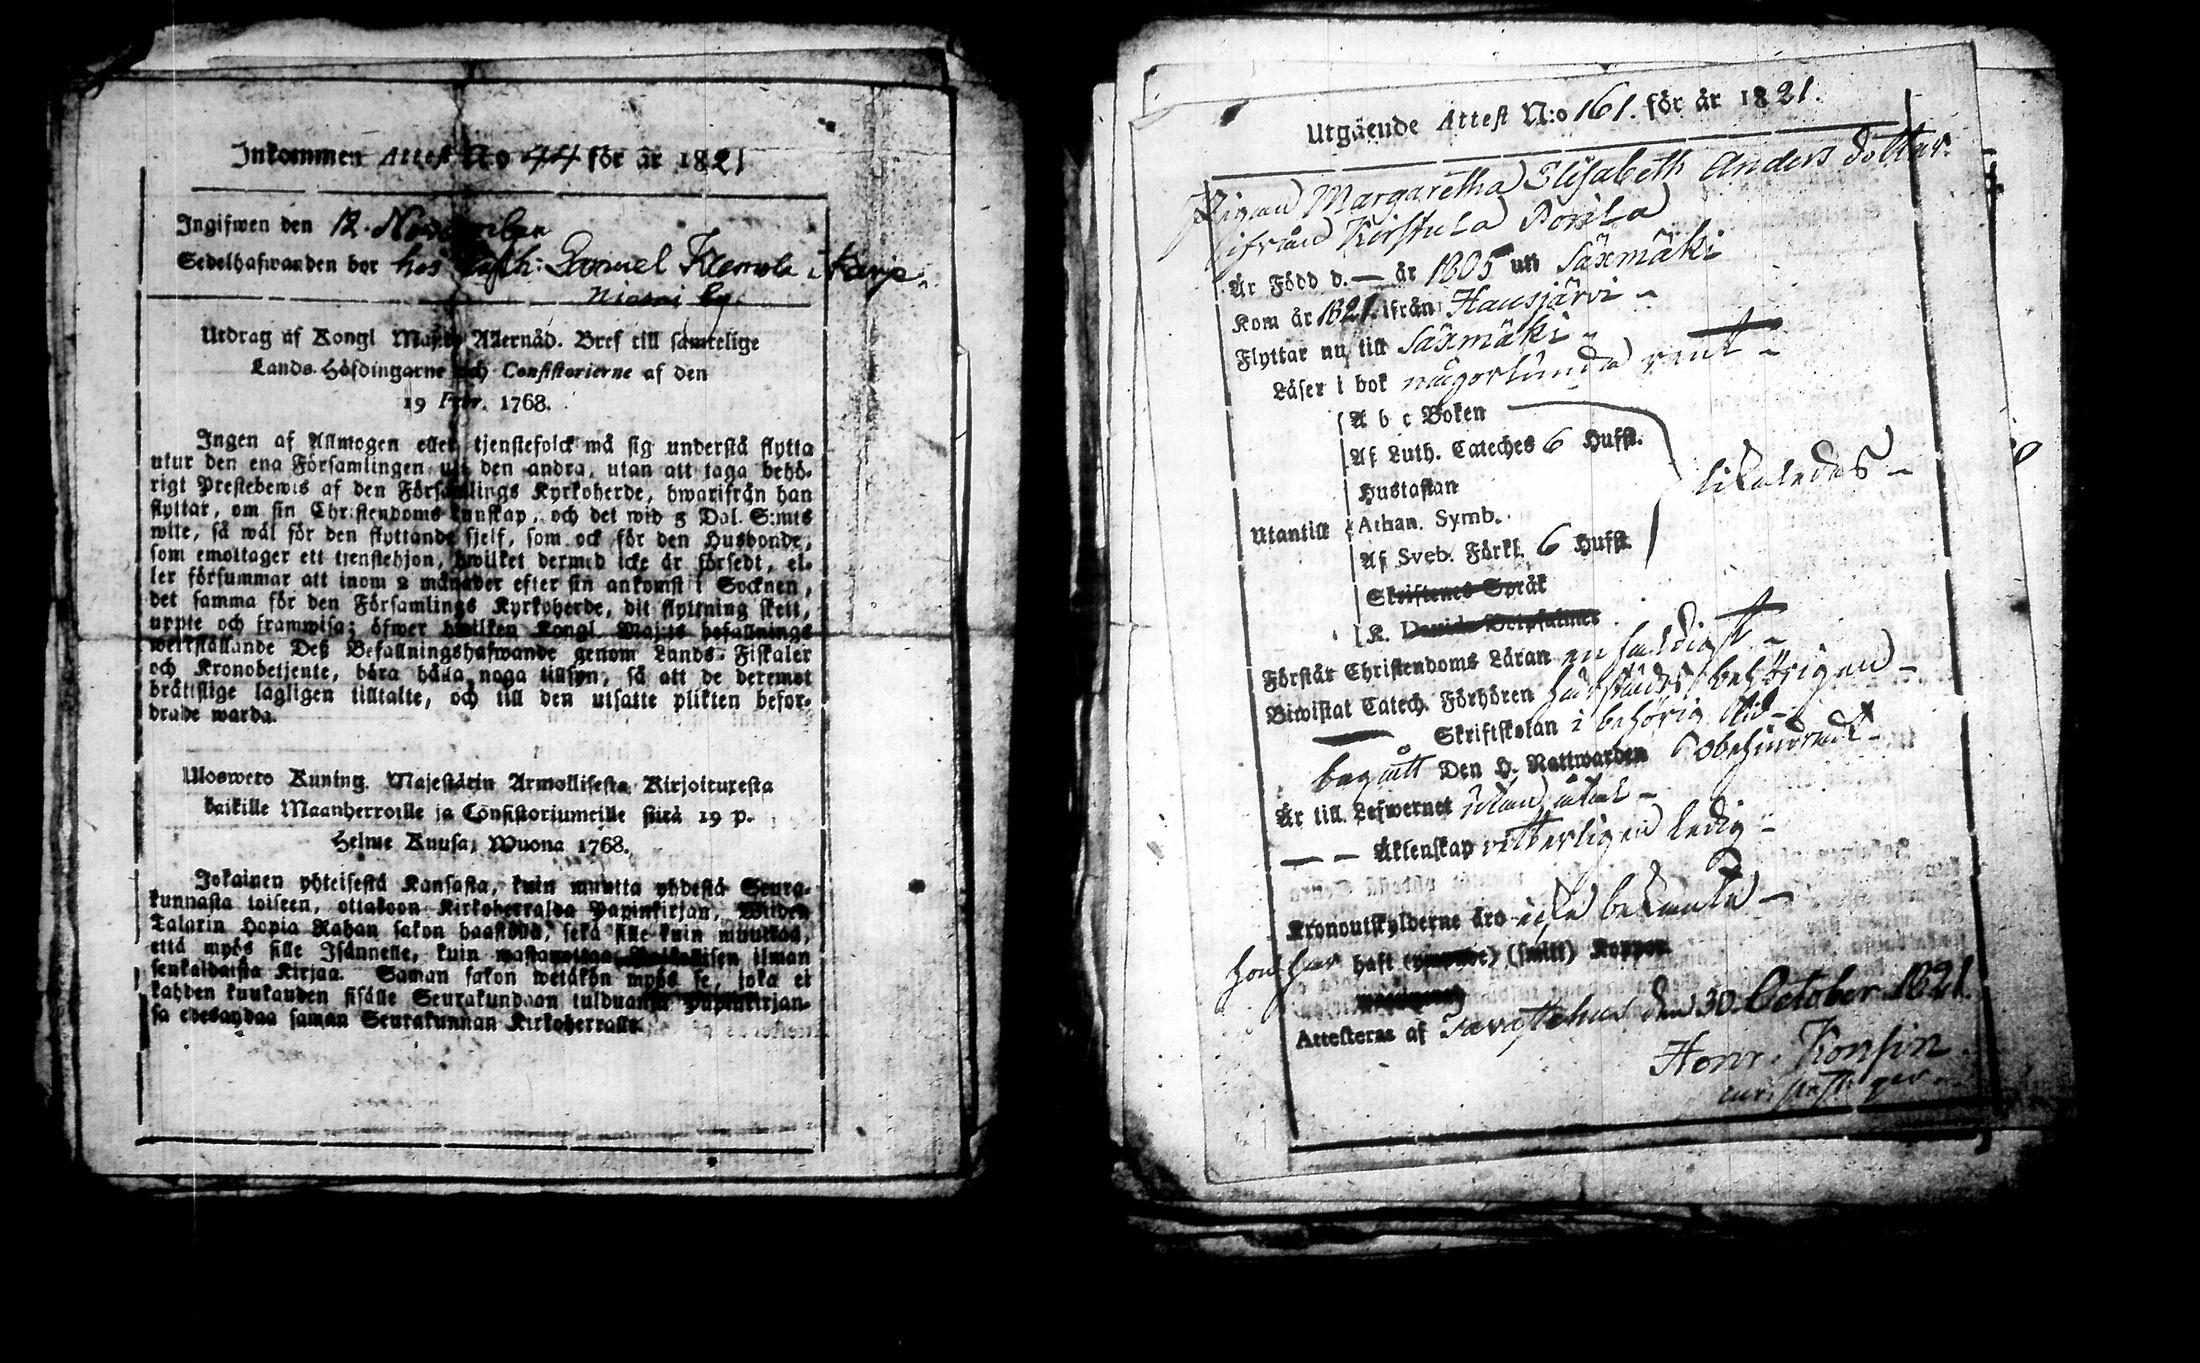 Inkommen Attest No 44 för år 1821
Ingifwen den 12. November
Sedelhafwanden bor hos Samuel Klemola i Karja-
niemi by.
Utdrag af Kongl Maj:ts Allernåd. Bref till samtelige
Lands-Höfdingarne och Consistorierne af den
19 Febr. 1768.
Ingen af Allmogen eller tjenstefolck må sig understå flytta
utur den ena Församlingen uti den andra, utan att taga behö-
rigt Prestebewis af den Församlings Kyrkoherde, hwarifrån han
flyttar, om sin Christendoms kunskap, och det wid 5 Dal. S:mts
wite, så wäl för den flyttande sjelf, som ock för den Husbonde,
som emottager ett tjenstehjon, hwilket dermed icke är försedt, el-
ler försummar att inom 2 månader efter sin ankomst i Socknen,
det samma för den Församlings Kyrkoherde, dit flyttning skett,
uppte och framwisa; öfwer hwilken Kongl. Maj:ts befallnings
werkställande Deß Befallningshafwande genom Lands-Fiskaler
och Kronobetjente, böra hålla noga tillsyn, så att de deremot
bråttslige lagligen tilltalte, och till den utsatte plikten befor-
drade warda.
Ulosweto Kuning. Majestätin Armollisesta Kirjoituxesta
kaikille Maanherroille ja Consistoriumeille siitä 19 p.
Helme Kuusa, Wuona 1768.
Jokainen yhteisestä Kansasta, kuin muutta yhdestä Seura-
kunnasta toiseen, ottakoon Kirkoherralda Papinkirjan, Wiiden
Talarin Hopia Rahan sakon haastolla, sekä sille kuin muuttaa,
että myös sille Isännelle, kuin wastanottaa ilman
senkaldaista Kirjaa. Saman sakon wetäkön myös se, joka ei
kahden kuukauden sisälle Seurakundaan tulduansa Papinkirjan-
sa edesandaa saman Seurakunnan Kirkoherralle.
Utgående Attest N:o 161. för år 1821.
Pigan Margaretha Elisabeth Anders dotter
ifrån Kirstula Porila
Är Född d. — år 1805 uti Säxmäki
Kom år 1821 ifrån Hausjärvi -
Flyttar nu till Säxmäki -
Läser i bok någorlunda rent -
A b c Boken
Af Luth. Cateches 6 Hufst.
Hustaflan
likaledes -
Utantill Athan. Symb.
Af Sveb. Förkl. 6 Hufst.
Skriftenes Språk
K. Davids Botpsalmer
Förstår Christendoms Läran enfaldigt -
Biwistat Catech. Förhören härstädes behörigen -
— Skriftskolan i behörig tid -
begått Den H. Nattwarden obehindradt -
Är till Lefwernet utan åtal -
— — Äktenskap witterligen ledig -
Kronoutskylderne äro icke bekante -
hon har haft (ympade) (smitt) Koppor
Attesteras af Tavastehus den 30 October 1821.
Henr. Konsin